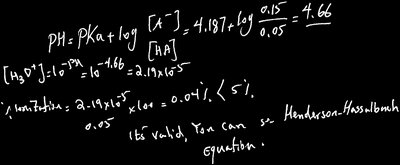 PH = PKa + log [A⁻]/[HA] = 4.187 + log 0.15/0.05 = 4.66
[H₃O⁺] = 10^-PH = 10^-4.66 = 2.19×10^-5
% ionization = 2.19×10^-5/0.05 × 100 = 0.04% < 5%
It's valid, You can Henderson-Hasselbach
equation.